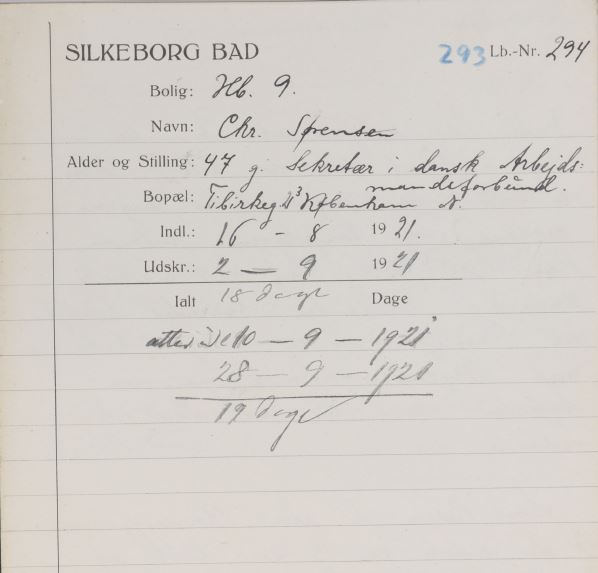 SILKEBORG BAD 293 Lb.-Nr. 294
Bolig: Hb. 9.
Navn: Chr. Sørensen
Alder og Stilling: 47 g. Sekretær i dansk Arbejds-
mandsforbund.
Bopæl: Tibirkeg. 3 København N.
Indl.: 16 - 8 1921.
Udskr.: 2 — 9 1921
Ialt 18 dage Dage
atter 10 — 9 — 1921
28 — 9 — 1921
19 dage